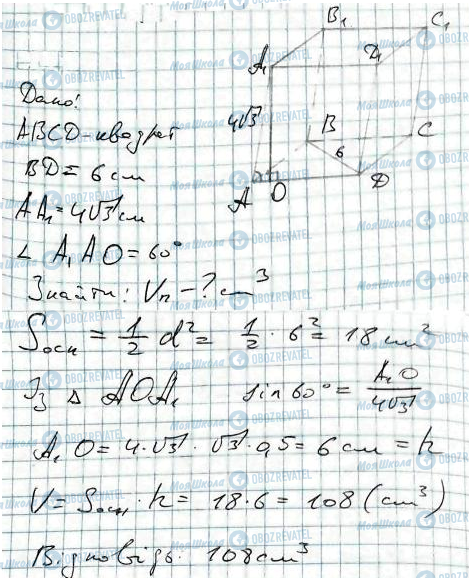 B₁ C₁
A₁ D₁
4√3
B C
6
A O D
Дано:
ABCD - квадрат
BD = 6 см
AA₁ = 4√3 см
∠ A₁AO = 60°
Знайти: Vп - ? см³
Sосн = 1/2 d² = 1/2 · 6² = 18 см²
Із Δ AOA₁ sin 60° = A₁O / 4√3
A₁O = 4·√3 · √3 · 0,5 = 6 см = h
V = Sосн · h = 18·6 = 108 (см³)
Відповідь: 108 см³
МояШкола
OBOZREVATEL